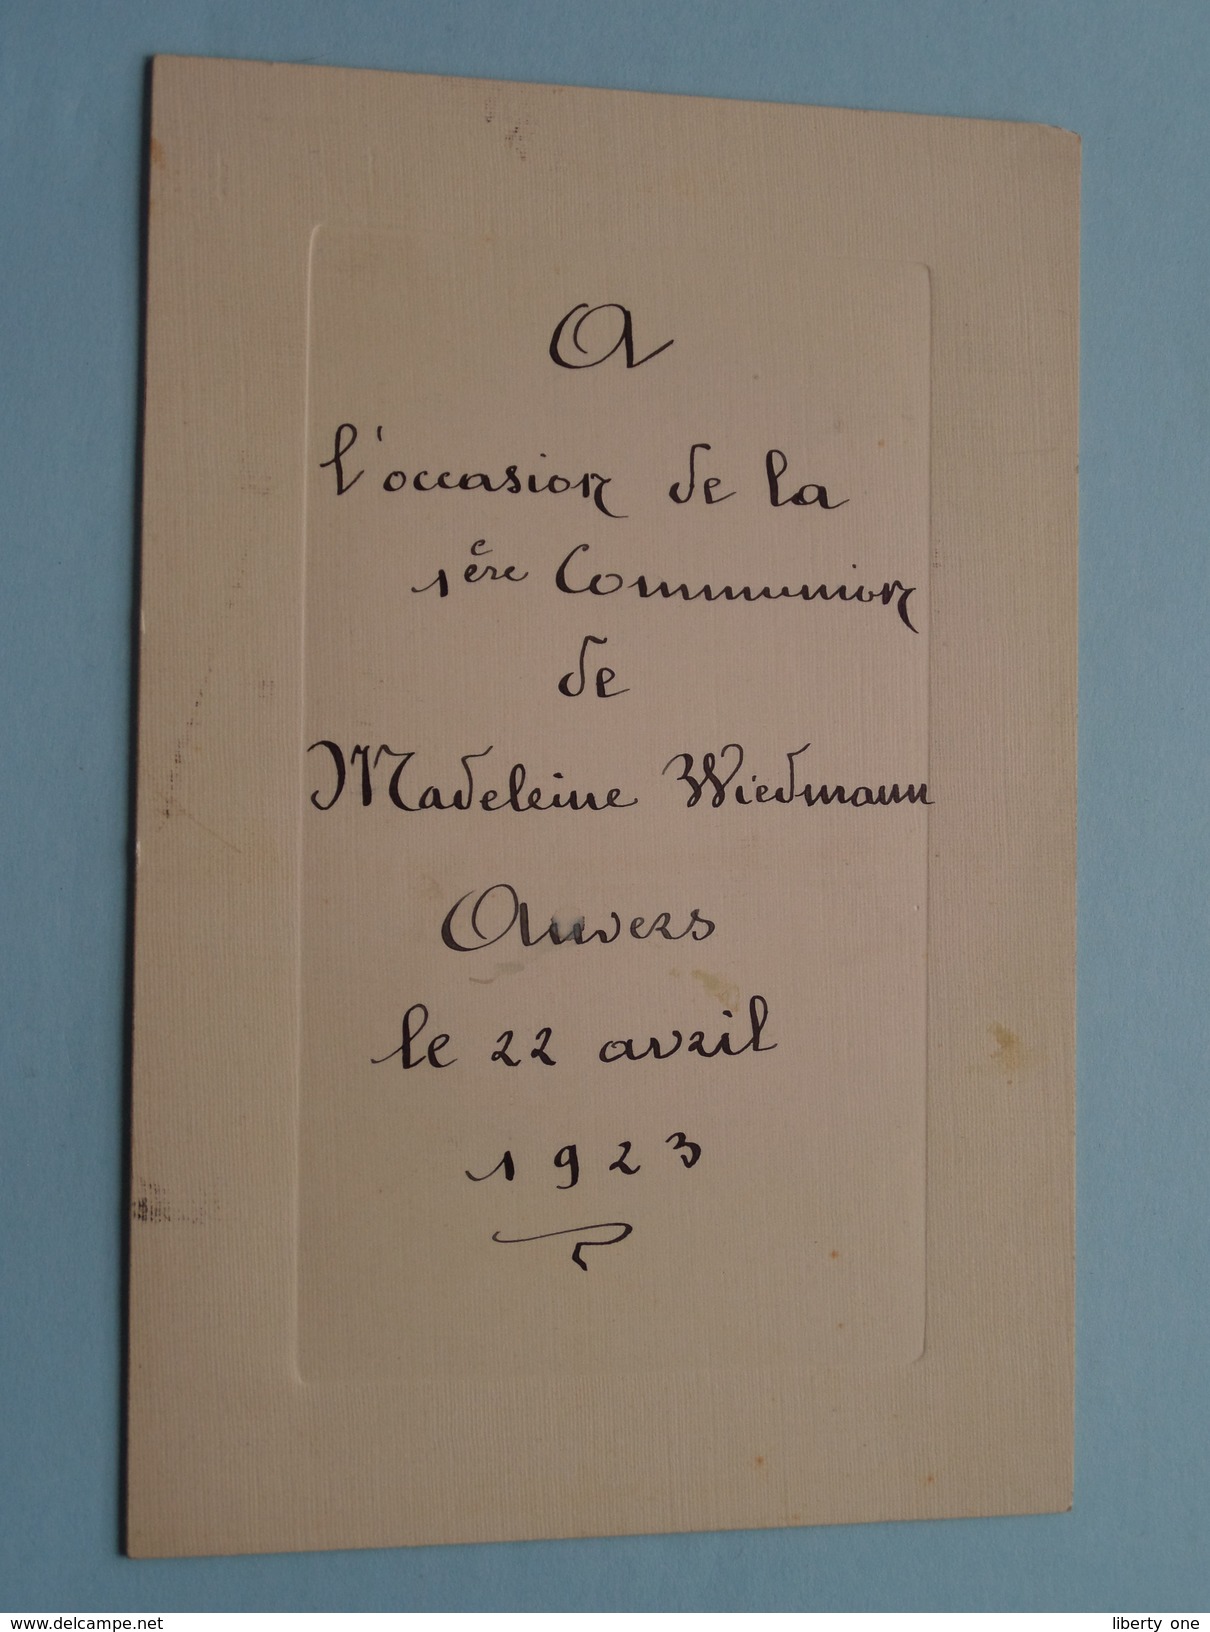 A
l'occasion de la
1ère Communion
de
Madeleine Wiedmann
Anvers
le 22 avril
1923
www.delcampe.net
liberty one